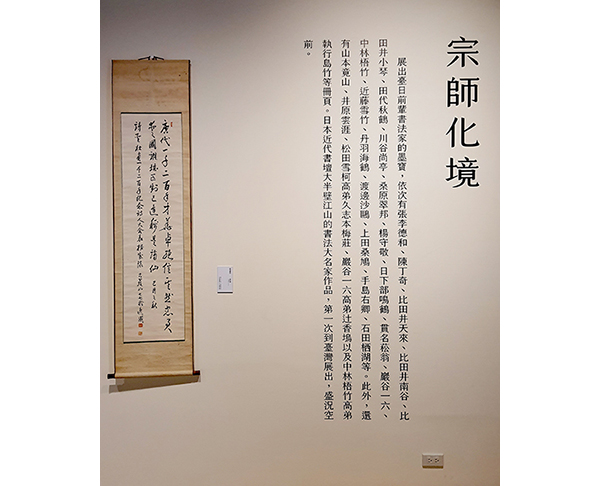 宗師化境
展出臺日前輩書法家的墨寶，依次有張李德和、陳丁奇、比田井天來、比田井南谷、比
田井小琴、田代秋鶴、川谷尚亭、桑原翠邦、楊守敬、日下部鳴鶴、貫名菘翁、巖谷一六、
中林梧竹、近藤雪竹、丹羽海鶴、渡邊沙鷗、上田桑鳩、手島右卿、石田栖湖等。此外，還
有山本竟山、井原雲涯、松田雪柯高弟久志本梅莊、巖谷一六高弟辻香塢以及中林梧竹高弟
執行島竹等冊頁。日本近代書壇大半壁江山的書法大名家作品，第一次到臺灣展出，盛況空
前。
唐代一千二百年才華卓絕信